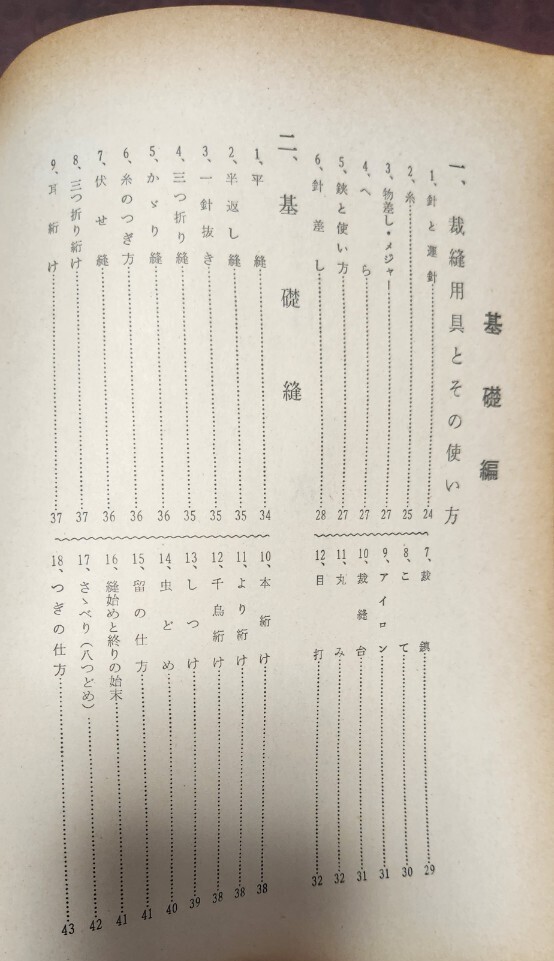 基礎編
一、裁縫用具とその使い方
1、針と運針 24
2、糸 25
3、物差し・メジャー 27
4、へら 27
5、鋏と使い方 27
6、針差し 28
7、裁鎮 29
8、こて 30
9、アイロン 31
10、裁縫台 31
11、丸み 32
12、目打 32
二、基礎縫
1、平縫 34
2、半返し縫 35
3、一針抜き 35
4、三つ折り縫 35
5、かゞり縫 36
6、糸のつぎ方 36
7、伏せ縫 36
8、三つ折り絎け 37
9、耳絎け 37
10、本絎け 38
11、より絎け 38
12、千鳥絎け 38
13、しつけ 39
14、虫どめ 40
15、留の仕方 41
16、縫始めと終りの始末 41
17、さゝべり(八つどめ) 42
18、つぎの仕方 43